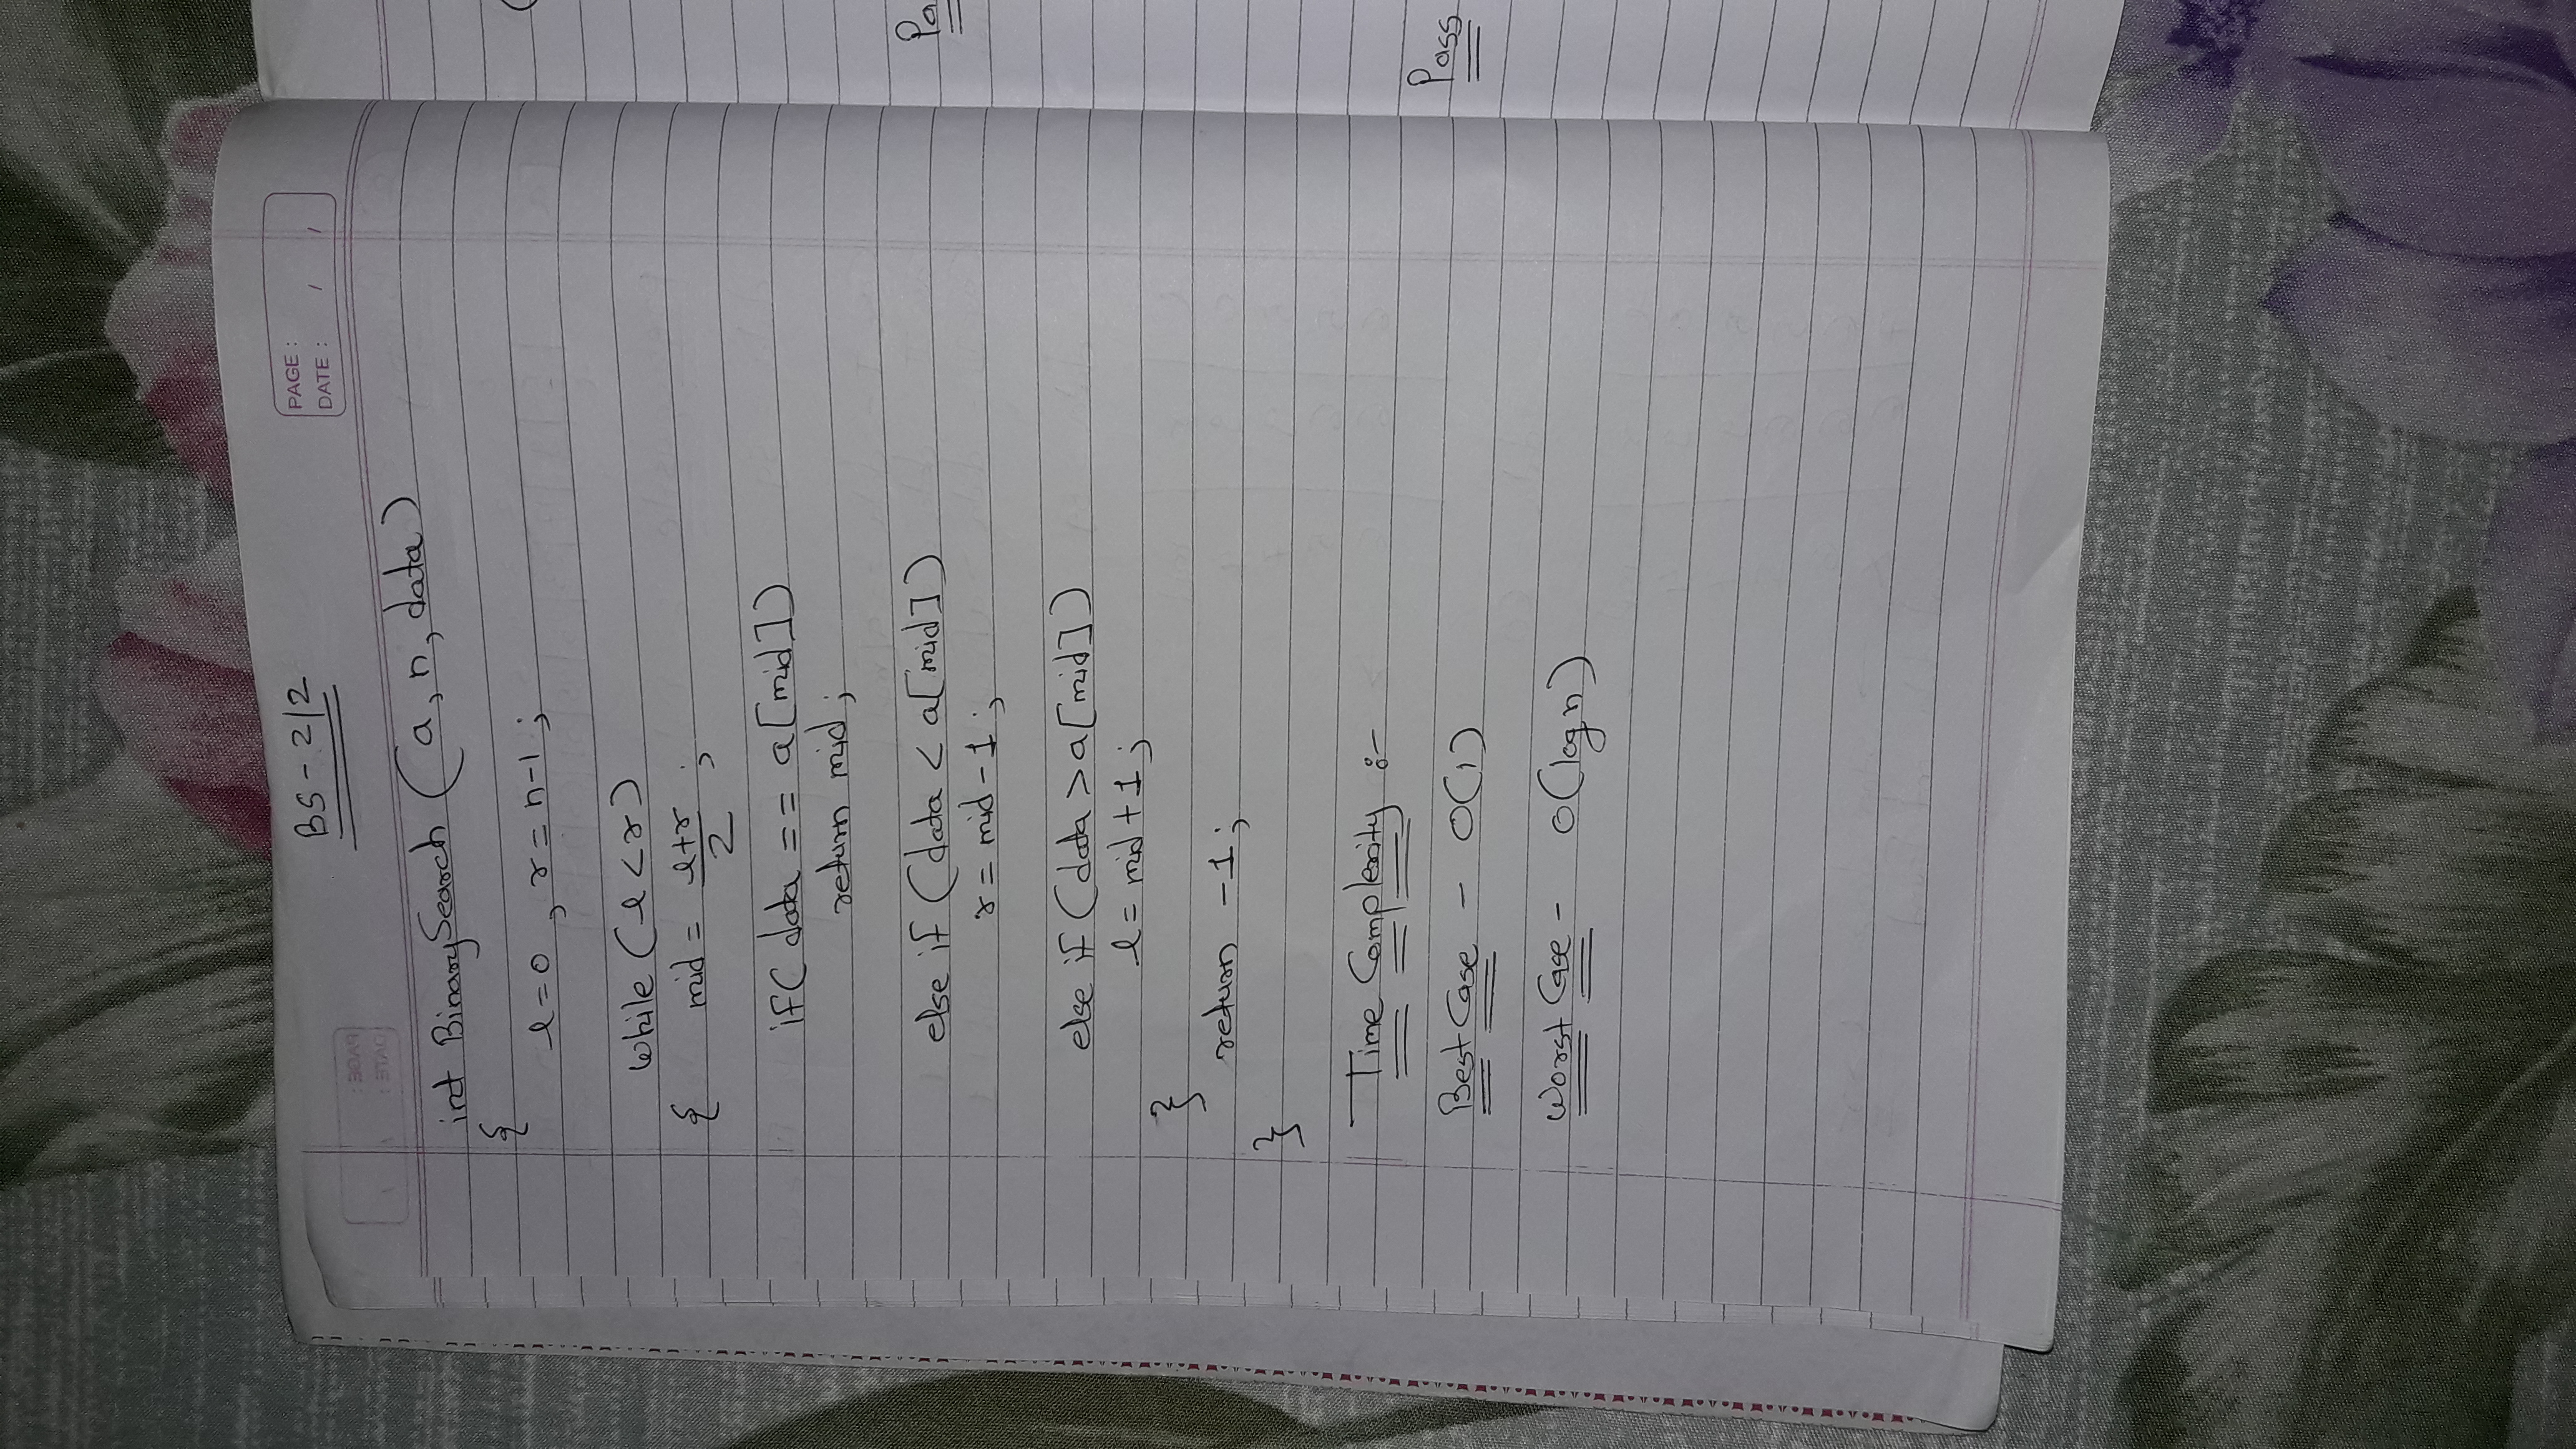 BS - 2/2
PAGE :
DATE : / /
int BinarySearch (a, n, data)
{
l=0 , r = n-1 ;
while (l < r)
{ mid = l+r/2 ;
if( data == a[mid])
return mid ;
else if (data < a[mid])
r = mid - 1 ;
else if (data > a[mid])
l = mid + 1 ;
}
return -1 ;
}
Time Complexity :-
Best Case - O(1)
Worst Case - O(log n)
(
Pa
Pass